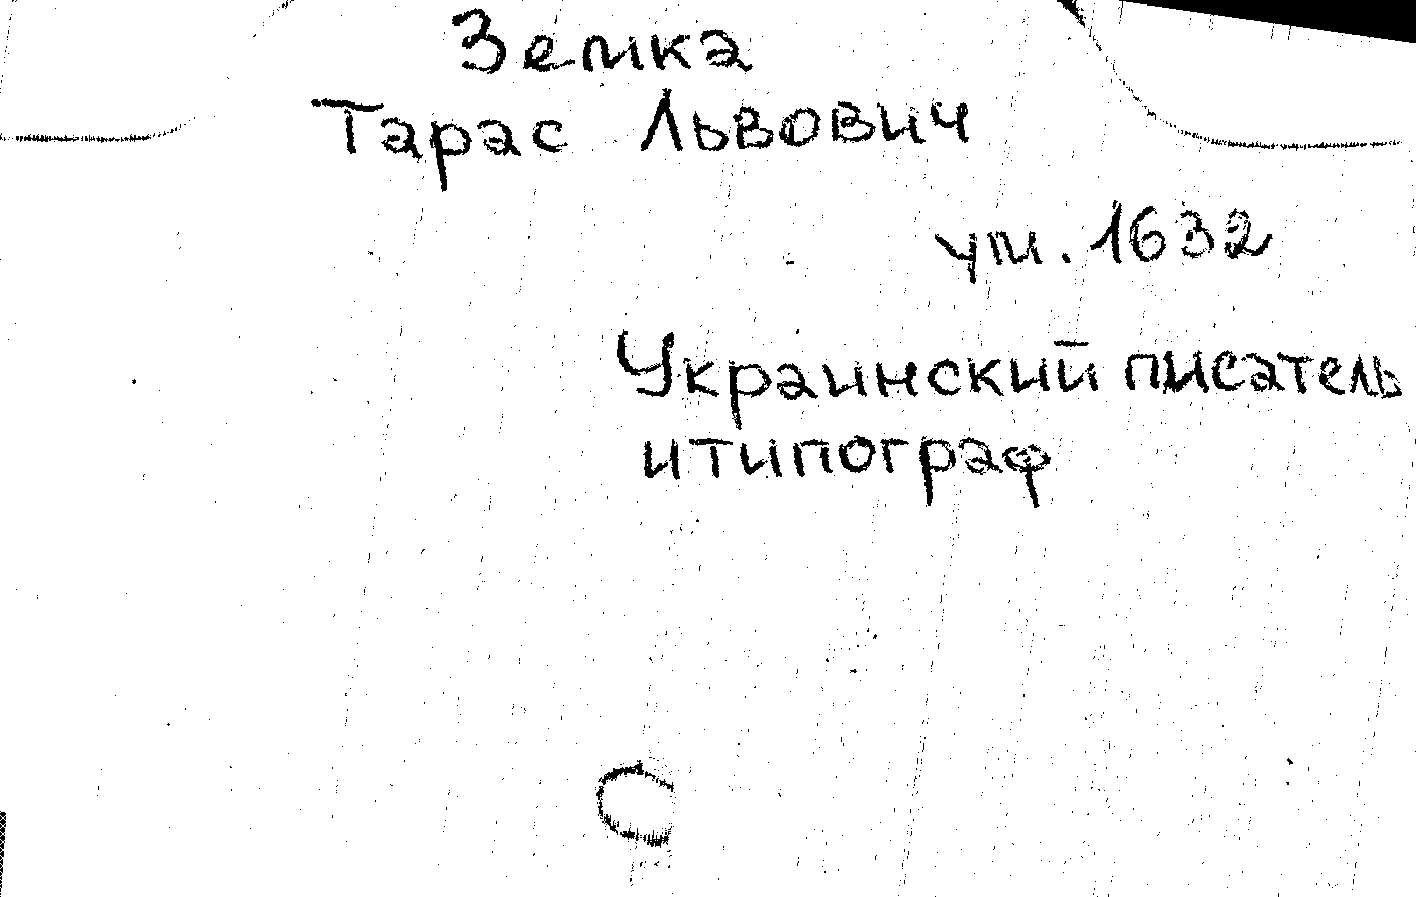 Земка
Тарас Львович
ум. 1632
Украинский писатель
и типограф